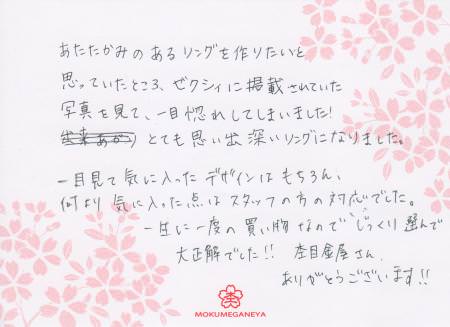 あたたかみのあるリングを作りたいと
思っていたところ、ゼクシィに掲載されていた
写真を見て、一目惚れしてしまいました!
とても思い出深いリングになりました。
一目見て気に入ったデザインはもちろん、
何より気に入った点はスタッフの方の対応でした。
一生に一度の買い物なのでじっくり選んで
大正解でした!! 杢目金屋さん、
ありがとうございます!!
MOKUMEGANEYA